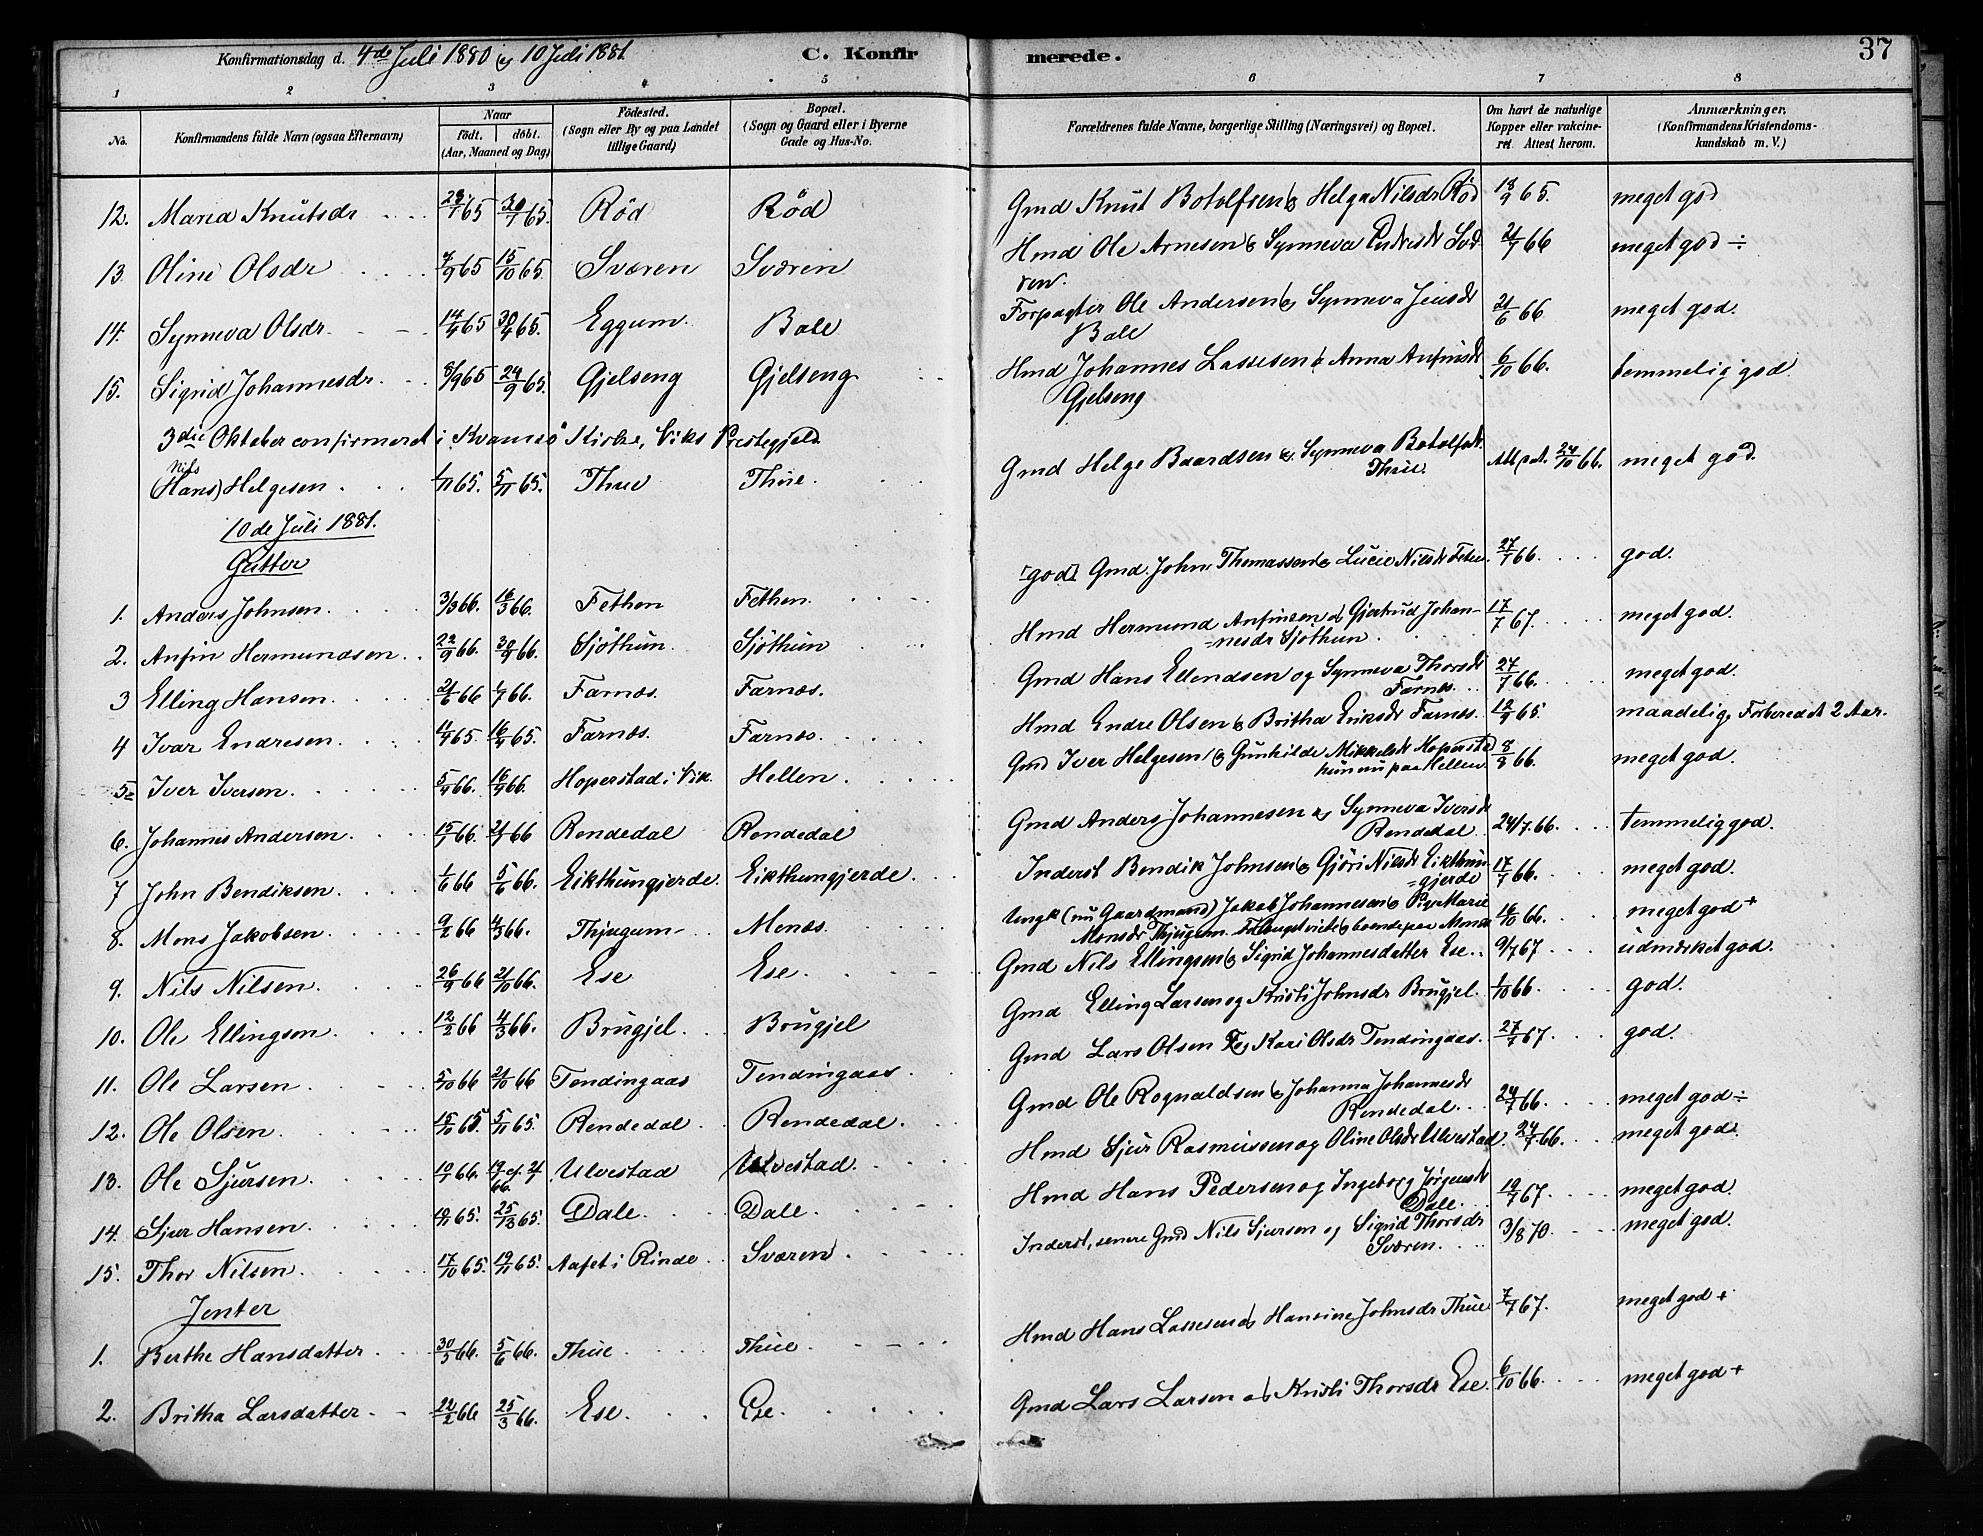 Konfirmationsdag d. 4de Juli 1880 og 10 Juli 1881. C. Konfirmerede. 37
1 2 3 4 5 6 7 8
No. Konfirmandens fulde Navn (ogsaa Efternavn) Naar født. døbt. (Aar, Maaned og Dag) Fødested. (Sogn eller By og paa Landet tillige Gaard) Bopæl. (Sogn og Gaard eller i Byerne Gade og Hus-No. Forældrenes fulde Navne, borgerlige Stilling (Næringsvei) og Bopæl. Om havt de naturlige Kopper eller vakcineret. Attest herom. Anmærkninger, (Konfirmandens Kristendomskundskab m. V.)
12. Maria Knutsdr 28/7 65 30/7 65. Röd Röd Gmd Knut Botolfsen & Helga Nilsdr Röd 18/9 65. meget god
13. Oline Olsdr 7/9 65 15/10 65. Sværen Sværen Hmd Ole Arnesen & Synneva Endresdr Sværen. 21/7 66 meget god ÷
14. Synneva Olsdr. 14/4 65 30/4 65. Eggum Bale Forpagter Ole Andersen & Synneva Jensdr Bale 21/6 66 meget god.
15. Sigrid Johannesdr. 8/9 65 24/9 65. Gjelseng Gjelseng Hmd Johannes Lassesen & Anna Anfinsdr Gjelseng 6/10 66. temmelig god
3die Oktober confirmeret i Kvamsö Kirke, Viks Prestegjeld.
Nils (Hans) Helgesen 1/11 65. 5/11 65. Thue Thue. Gmd Helge Baardsen & Synneva Botolfsdr. Thue 24/10 66. meget god.
10de Juli 1881.
Gutter
1. Anders Johnsen. 3/3 66. 18/3 66. Fethen Fethen. [god] Gmd. John Thomassen & Lucie Nilsdr 27/7 66. god.
2. Anfin Hermundsen 22/9 66. 30/9 66. Sjöthun Sjöthun Hmd Hermund Anfinsen & Gjertrud Johannesdr Sjöthun 17/7 67. meget god.
3 Elling Hansen 21/6 66 1/7 66. Farnæs. Farnæs. Gmd Hans Ellendsen og Synneva Thorsdr Farnes. 27/7 66. meget god.
4 Ivar Endresen 4/4 65. 16/4 65. Farnæs. Farnæs. Hmd Endre Olsen & Britha Eriksdr Farnes. 12/9 65. maadelig, Forberedet 2 Aar.
5 Iver Iversen. 5/4 66. 16/4 66. Hoperstad i Vik. Hellen Gmd Iver Helgesen & Gunhilde Mikkelsdr Hoperstad paa Hellen 8/8 66. meget god.
6. Johannes Andersen 15/1 66. 21/1 66 Rendedal Rendedal Gmd Anders Johannesen & Synneva Iversdr Rendedal 24/7.66. temmelig god.
7 John Bendiksen 1/6 66 5/6 66. Eikthungjerde. Eikthungjerde. Inderst Bendik Johnsen & Gjöri Nilsdr Eikthungjerde 17/7 66. meget god.
8. Mons Jakobsen 9/2 66 4/3 66. Thjugum Menæs. Ungk (nu Gaardmand) Jakob Johannesen & Pige Marie Monsdr Thjugum 16/10 66. meget god +
9. Nils Nilsen. 26/9 66 21/10 66. Ese Ese. Gmd Nils Ellingsen & Sigrid Johannesdatter Ese. 9/7 67 udmærket god.
10. Ole Ellingsen 12/2 66 4/3 66. Brugjel. Brugjel Gmd Elling Larsen og Kristi Johnsdr Brugjel. 1/10 66. god.
11. Ole Larsen 5/10 66 21/10 66 Tendingaas Tendingaas. Gmd Lars Olsen & Kari Olsdr Tendingaas. 27/7 67. god.
12. Ole Olsen. 15/10 65 5/11 65. Rendedal. Rendedal. Gmd Ole Rognaldsen & Johanna Johannesdr Rendedal 24/7 66. meget god ÷
13. Ole Sjursen 10/1 66. Ulvestad Ulvestad. Hmd Sjur Rasmussen og Oline Olsdr Ulvestad. 24/7 66. meget god.
14. Sjur Hansen 65. 65. Dale. Dale. Hmd Hans Pedersen og Ingeborg Jørgensdr Dale. 19/7 67. meget god.
15. Thor Nilsen. 17/10 65. 19/11 65. Aafet i Rinde Sværen. Inderst, senere Gmd Nils Sjursen og Sigrid Thorsdr Sværen. 3/8 70. meget god.
Jenter
1. Berthe Hansdatter 30/5 66. 5/6 66. Thue Thue Hmd Hans Lassesen & Hansine Johnsdr Thue 7/7 67. meget god +
2. Britha Larsdatter 22/2 66 25/3 66. Ese. Ese. Gmd Lars Larsen & Kristi Thorsdr Ese. 6/10 66. meget god +